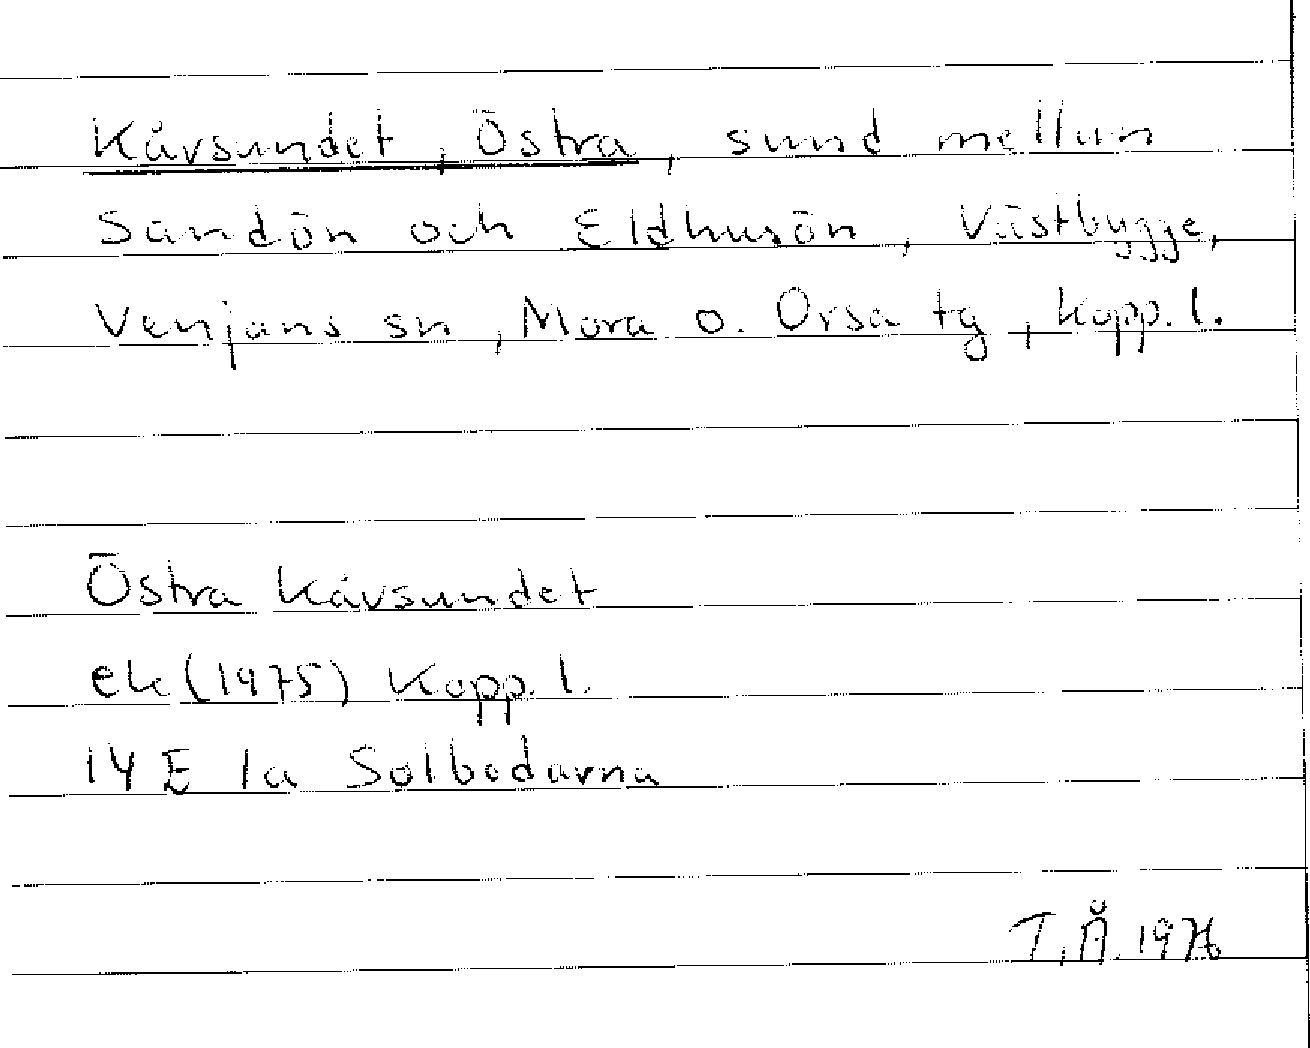 Kåvsundet, Östra, sund mellan
Sandön och Eldhusön, Västbygge,
Venjans sn, Mora o. Orsa tg, Kopp. l.
Östra Kåvsundet
ek (1975) Kopp. l.
14 E 1a Solbodarna
T.Å. 1976